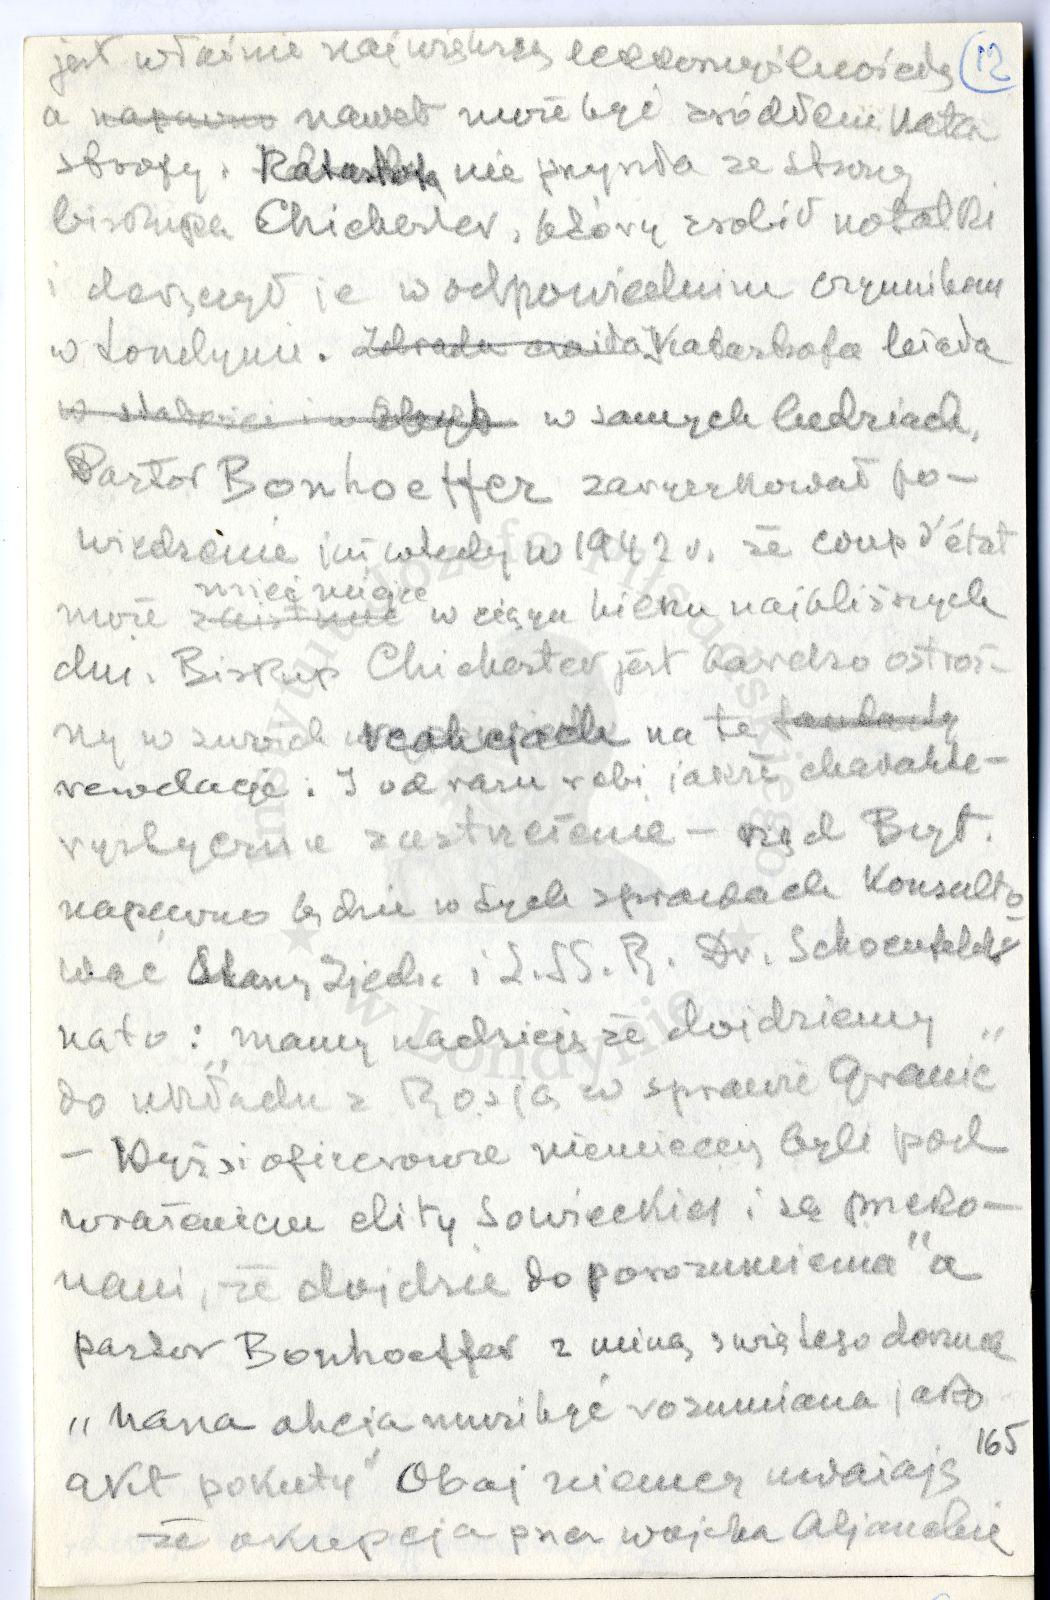 jest właśnie największą lekkomyślnością 12
a napewno nawet może być źródłem kata
strofy. Katastrofa nie przyszła ze strony
biskupa Chichester, który zrobił notatki
i doręczył je w odpowiednim czynnikom
w Londynie. Zdrada Katastrofa leżała
w słabości i w w samych ludziach.
Pastor Bonhoeffer zaryzykował po-
wiedzenie już wtedy w 1942 r. że coup d'état
mieć miejsce
może zaistnieć w ciągu kilku najbliższych
dni. Biskup Chichester jest bardzo ostroż-
ny w swoich reakcjach na te
rewelacje. I od razu robi jakże charakte-
rystyczne zastrzeżenie – rząd Bryt.
napewno będzie w tych sprawach Konsulto
wać Stany Zjedn. i Z.SS.R. Dr. Schoenfeld
na to: "mamy nadzieję że dojdziemy
do układu z Rosją w sprawie Granic"
– Wyżsi oficerowie niemieccy byli pod
wrażeniem elity Sowieckiej i są przeko-
nani, że dojdzie do porozumienia" a
pastor Bonhoeffer z miną świętego dorzuca
„nasza akcja musi być rozumiana jako
165
akt pokuty" Obaj niemcy uważają
że okupacja przez wojska Aljanckie
Instytut Józefa Piłsudskiego
w Londynie